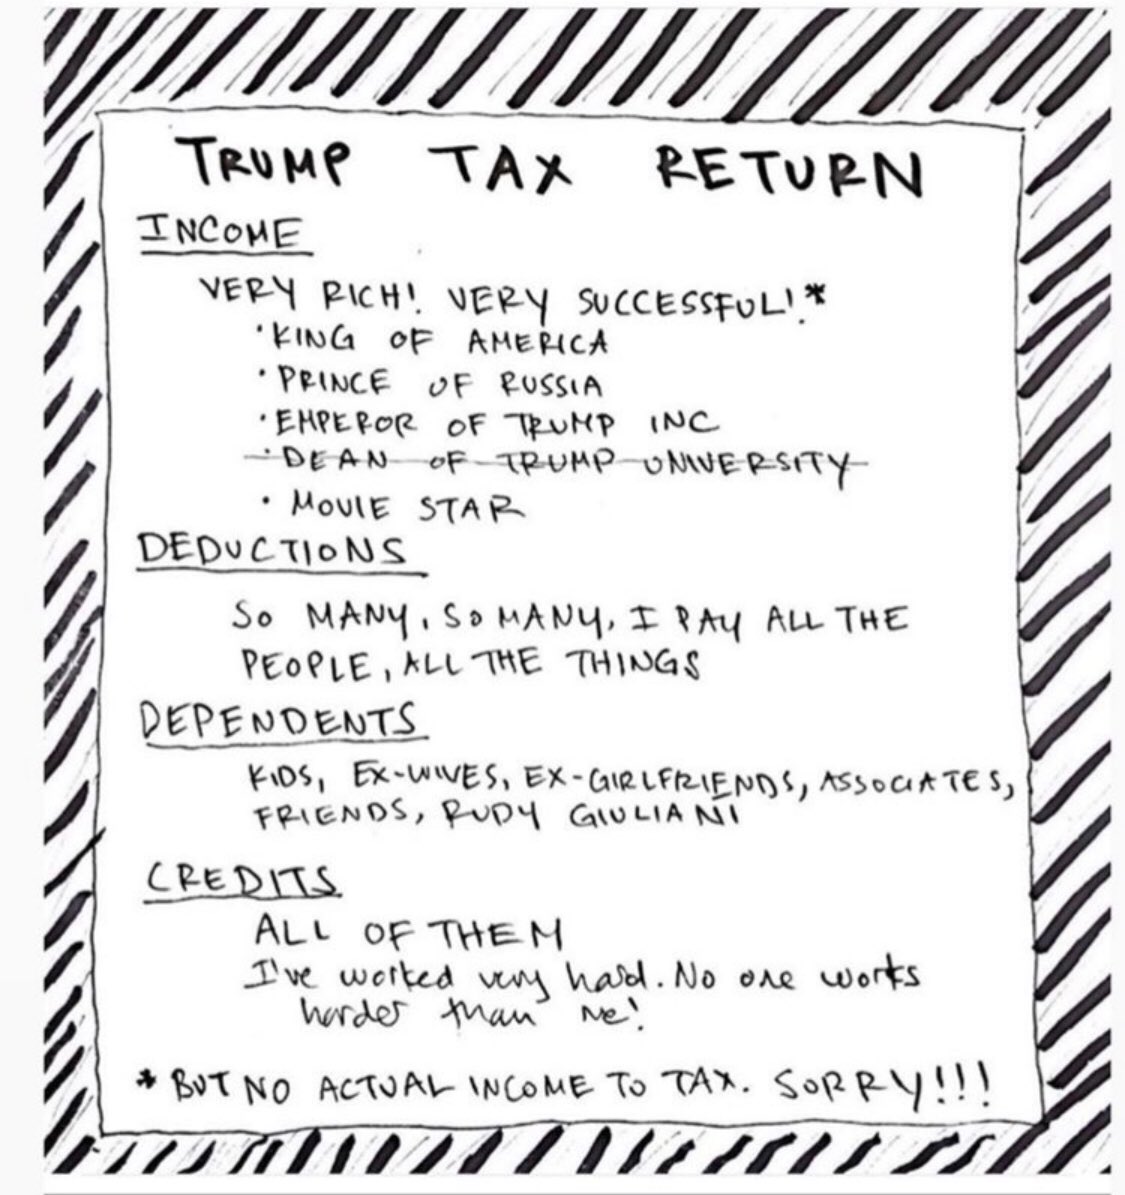 TRUMP TAX RETURN
INCOME
VERY RICH! VERY SUCCESSFUL!*
• KING OF AMERICA
• PRINCE OF RUSSIA
• EMPEROR OF TRUMP INC
• DEAN OF TRUMP UNIVERSITY
• MOVIE STAR
DEDUCTIONS
SO MANY, SO MANY, I PAY ALL THE
PEOPLE, ALL THE THINGS
DEPENDENTS
KIDS, EX-WIVES, EX-GIRLFRIENDS, ASSOCIATES,
FRIENDS, RUDY GIULIANI
CREDITS
ALL OF THEM
I've worked very hard. No one works
harder than me!
* BUT NO ACTUAL INCOME TO TAX. SORRY!!!